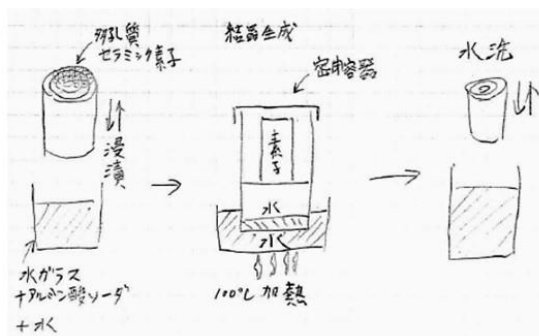 多孔質
セラミック素子
浸漬
水ガラス
+アルミン酸ソーダ
+水
結晶生成
密閉容器
素子
水
水
100℃加熱
水洗